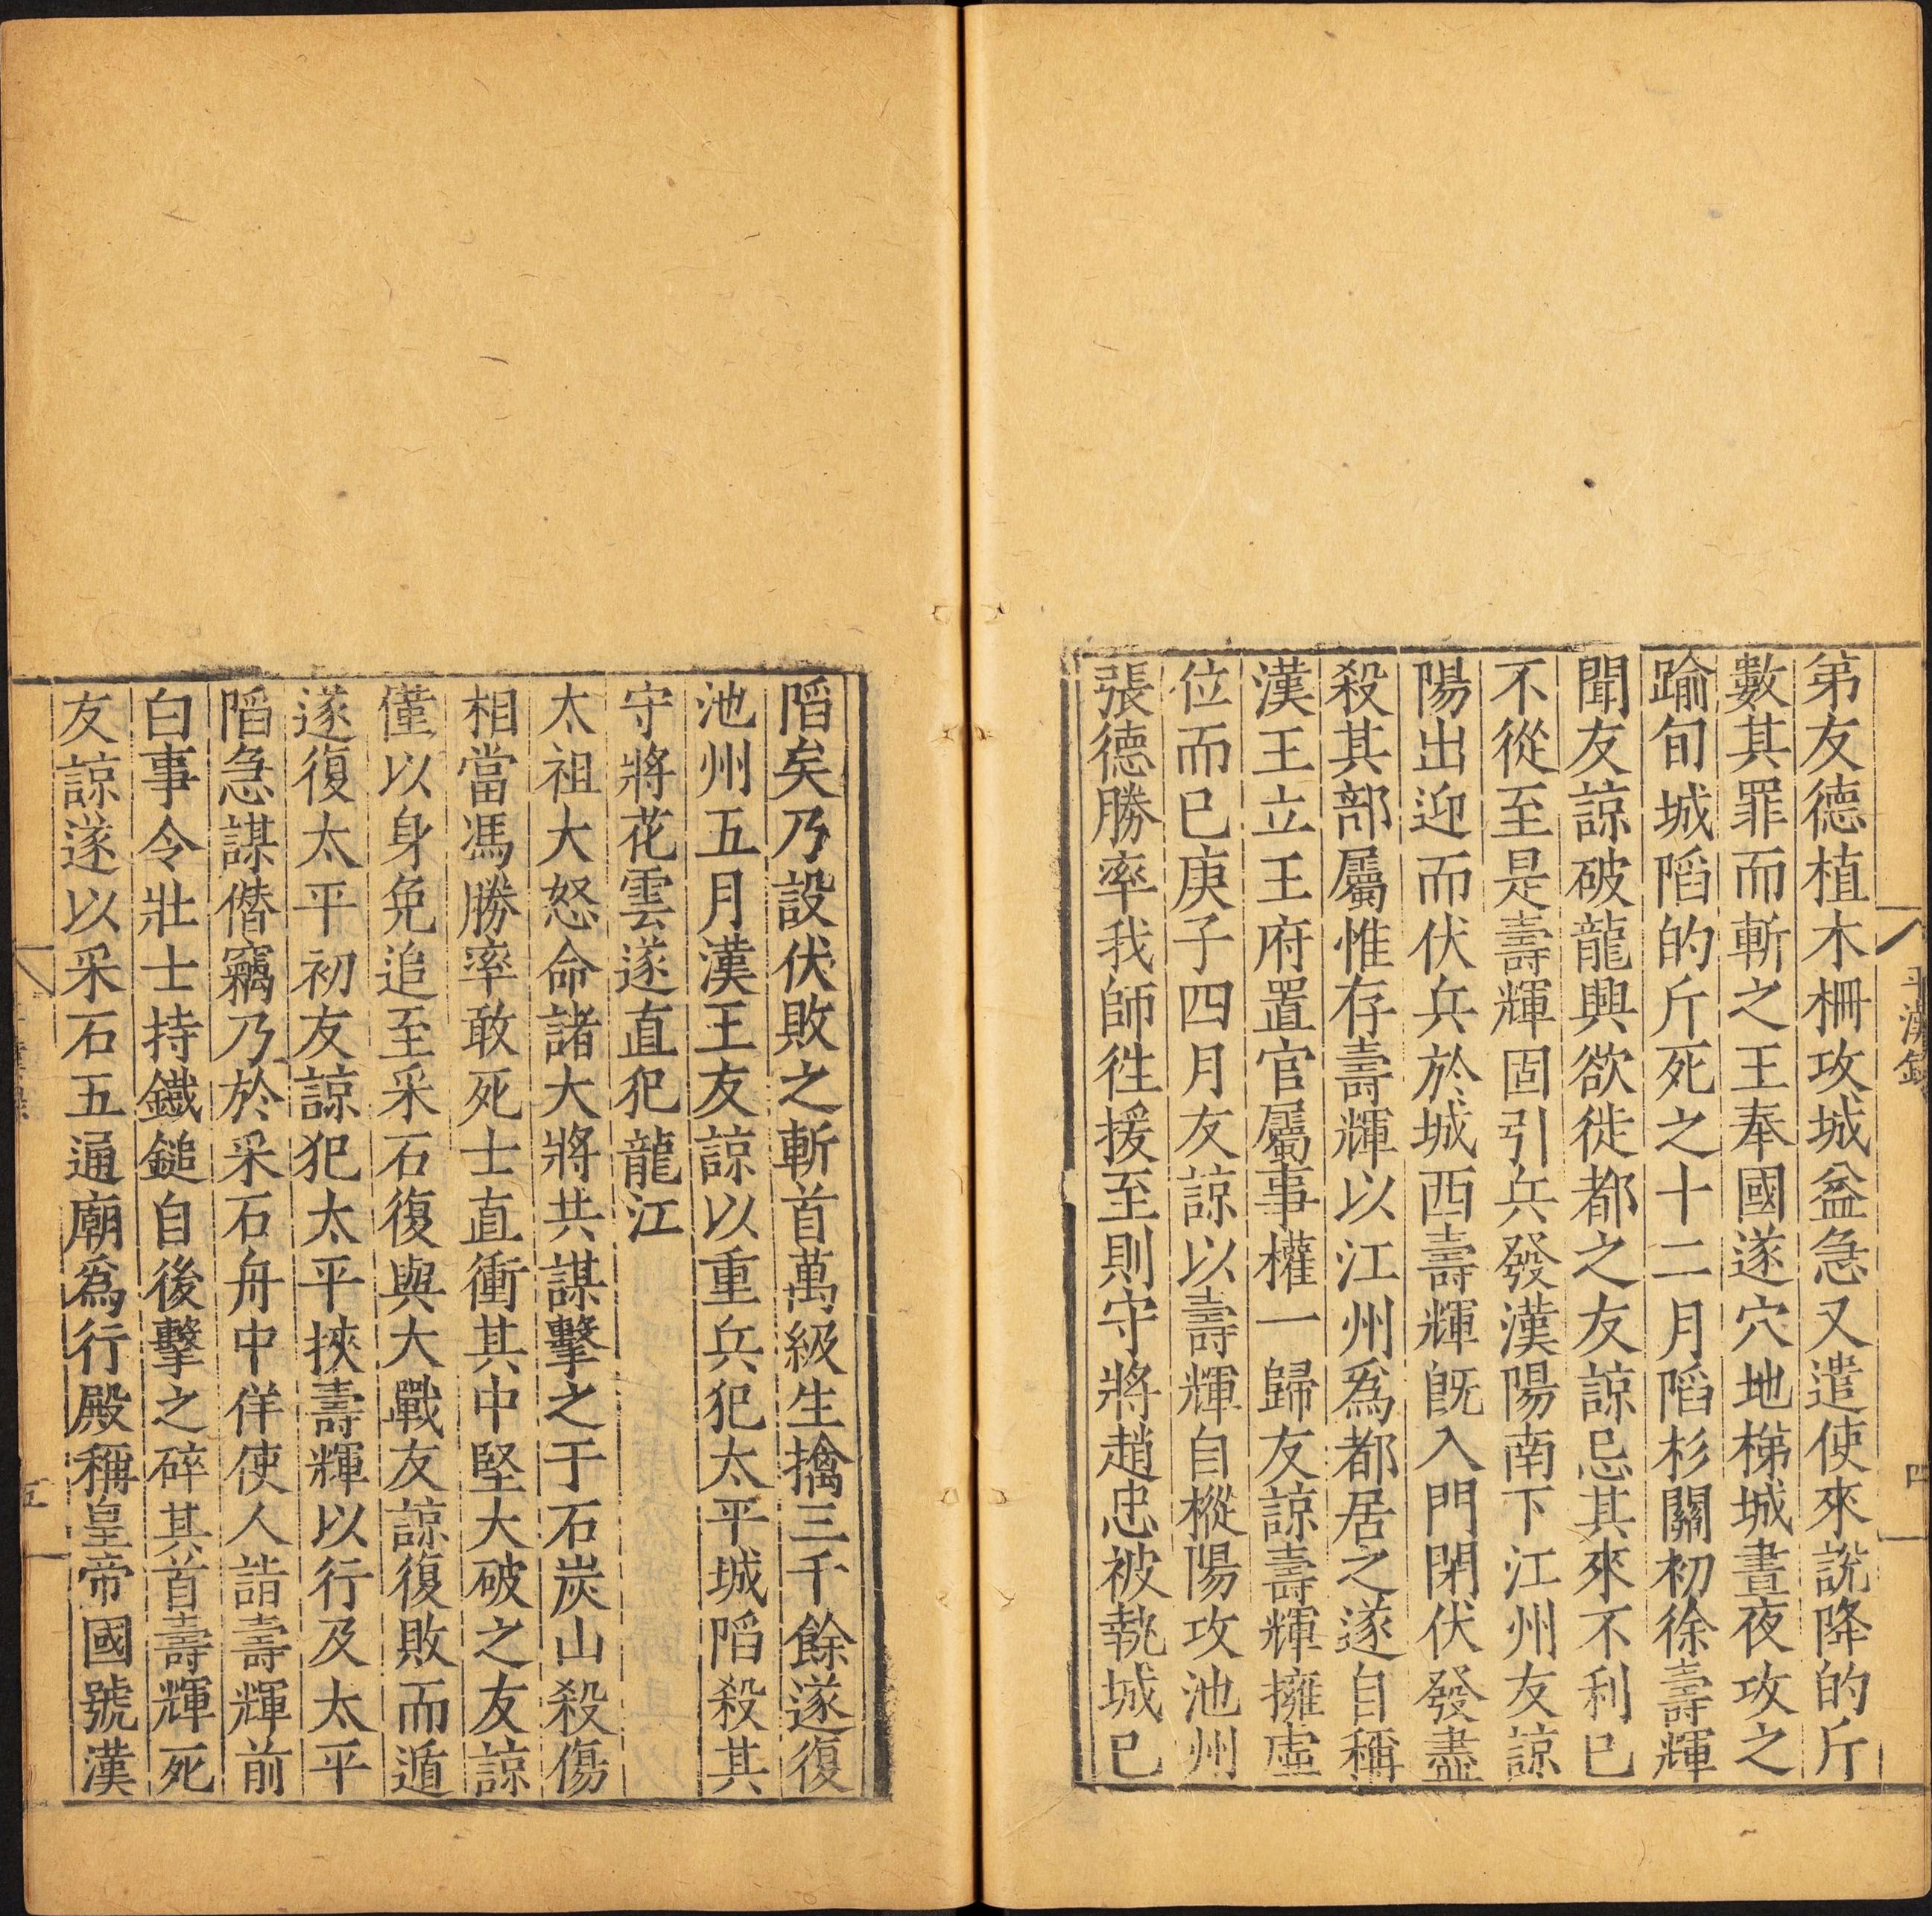 平漢錄
四
弟友德植木柵攻城益急又遣使來說降的斤
數其罪而斬之王奉國遂穴地梯城晝夜攻之
踰旬城䧟的斤死之十二月䧟杉關初徐壽輝
聞友諒破龍興欲徙都之友諒忌其來不利已
不從至是壽輝固引兵發漢陽南下江州友諒
陽出迎而伏兵於城西壽輝旣入門閉伏發盡
殺其部屬惟存壽輝以江州爲都居之遂自稱
漢王立王府置官屬事權一歸友諒壽輝擁虛
位而已庚子四月友諒以壽輝自樅陽攻池州
張德勝率我師徃援至則守將趙忠被執城已
䧟矣乃設伏敗之斬首萬級生擒三千餘遂復
池州五月漢王友諒以重兵犯太平城䧟殺其
守將花雲遂直犯龍江
太祖大怒命諸大將共謀擊之于石炭山殺傷
相當馮勝率敢死士直衝其中堅大破之友諒
僅以身免追至采石復與大戰友諒復敗而遁
遂復太平初友諒犯太平挾壽輝以行及太平
䧟急謀僭竊乃於采石舟中佯使人詣壽輝前
白事令壯士持鐵鎚自後擊之碎其首壽輝死
友諒遂以采石五通廟爲行殿稱皇帝國號漢
五